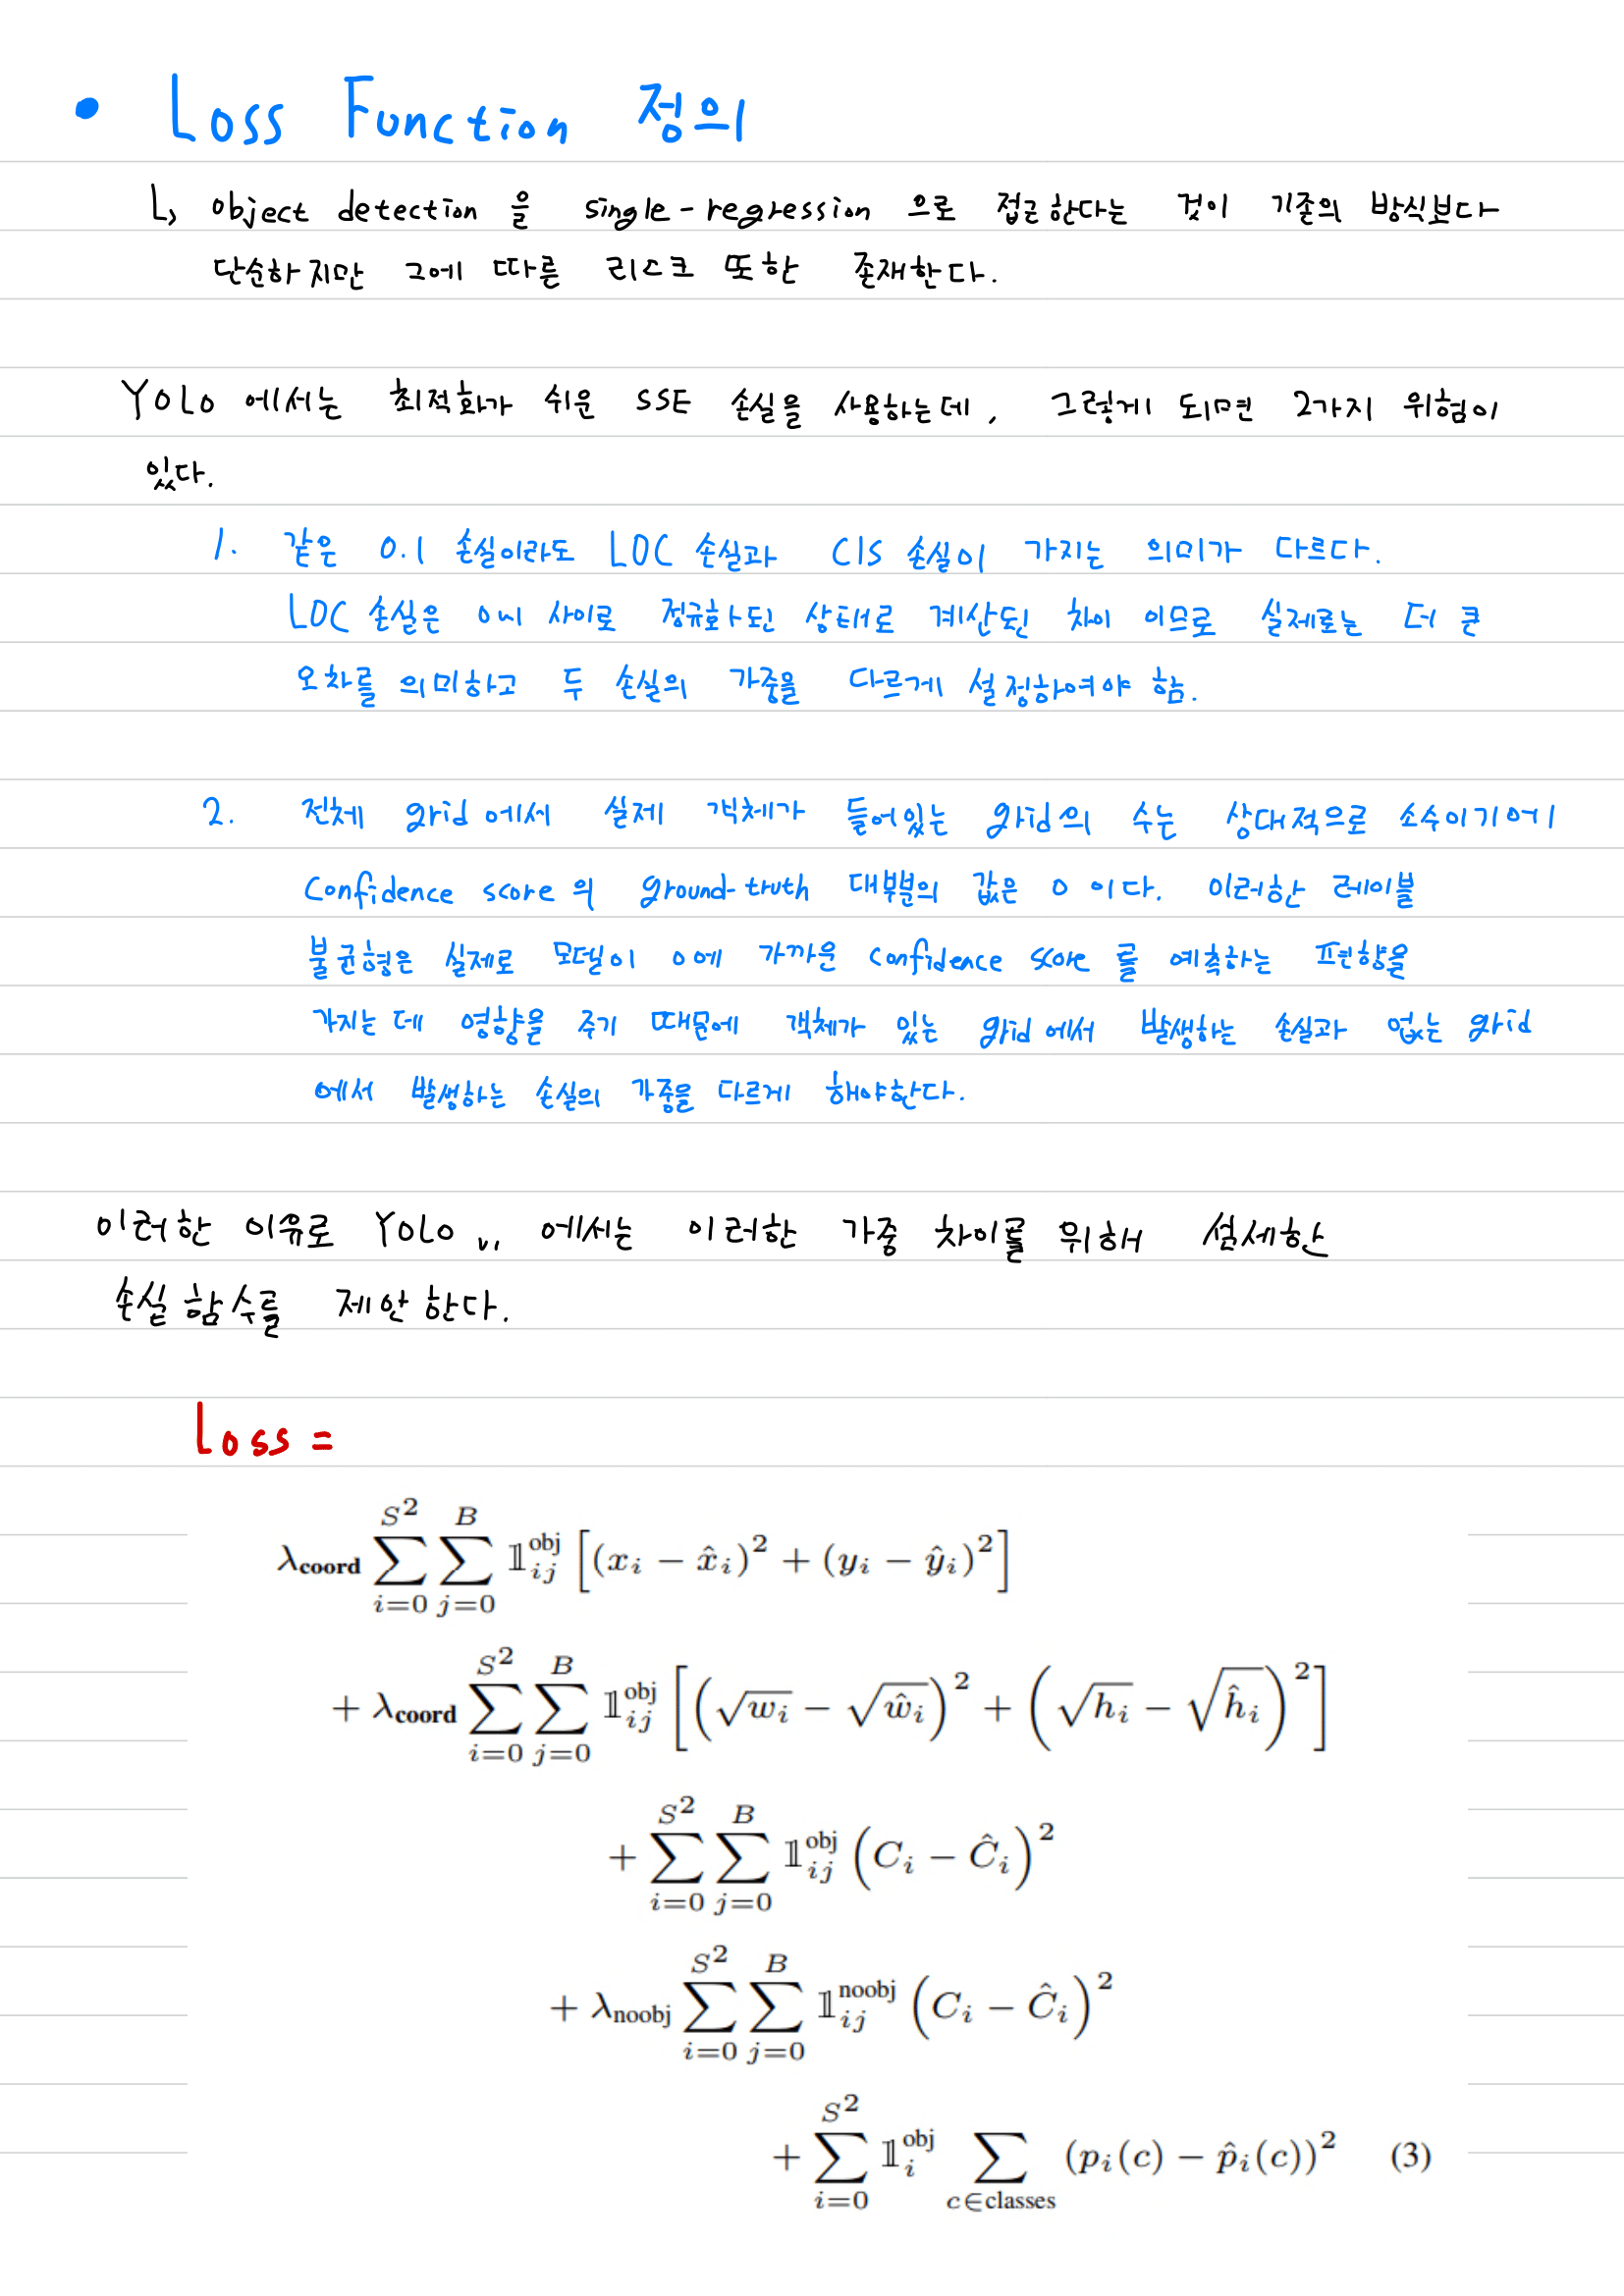 • Loss Function 정의
↳ object detection 을 single-regression 으로 접근한다는 것이 기존의 방식보다
단순하지만 그에 따른 리스크 또한 존재한다.
YOLO 에서는 최적화가 쉬운 SSE 손실을 사용하는데, 그렇게 되면 2가지 위험이
있다.
1. 같은 0.1 손실이라도 LOC 손실과 ClS 손실이 가지는 의미가 다르다.
LOC 손실은 0~1 사이로 정규화된 상태로 계산된 차이 이므로 실제로는 더 큰
오차를 의미하고 두 손실의 가중을 다르게 설정하여야 함.
2. 전체 grid 에서 실제 객체가 들어있는 grid의 수는 상대적으로 소수이기에
Confidence score 의 ground-truth 대부분의 값은 0 이다. 이러한 레이블
불균형은 실제로 모델이 0에 가까운 confidence score 를 예측하는 편향을
가지는 데 영향을 주기 때문에 객체가 있는 grid 에서 발생하는 손실과 없는 grid
에서 발생하는 손실의 가중을 다르게 해야한다.
이러한 이유로 YOLO v1 에서는 이러한 가중 차이를 위해 섬세한
손실 함수를 제안한다.
Loss =
λ_coord ∑_{i=0}^{S²} ∑_{j=0}^{B} 𝟙_{ij}^{obj} [(x_i − x̂_i)² + (y_i − ŷ_i)²]
+ λ_coord ∑_{i=0}^{S²} ∑_{j=0}^{B} 𝟙_{ij}^{obj} [(√w_i − √ŵ_i)² + (√h_i − √ĥ_i)²]
+ ∑_{i=0}^{S²} ∑_{j=0}^{B} 𝟙_{ij}^{obj} (C_i − Ĉ_i)²
+ λ_noobj ∑_{i=0}^{S²} ∑_{j=0}^{B} 𝟙_{ij}^{noobj} (C_i − Ĉ_i)²
+ ∑_{i=0}^{S²} 𝟙_i^{obj} ∑_{c∈classes} (p_i(c) − p̂_i(c))² (3)